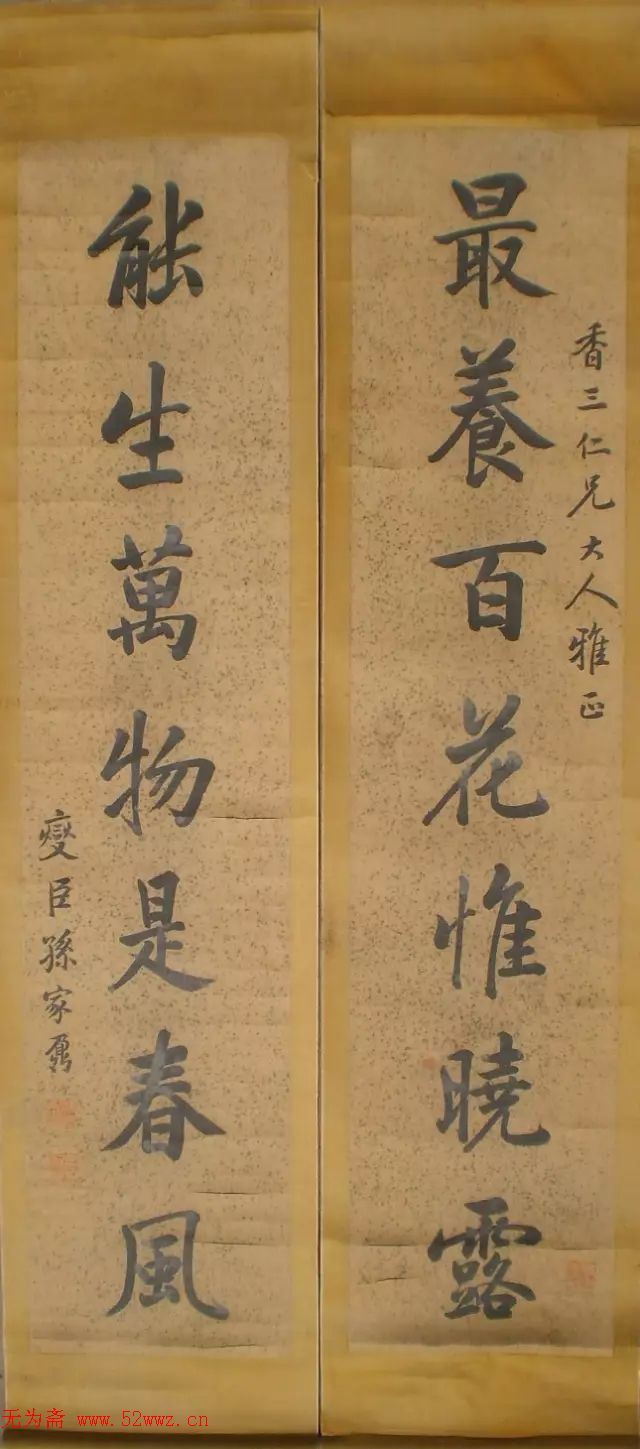 香三仁兄大人雅正
最養百花惟曉露
能生萬物是春風
燮臣孫家鼐
无为斋 www.52wwz.cn